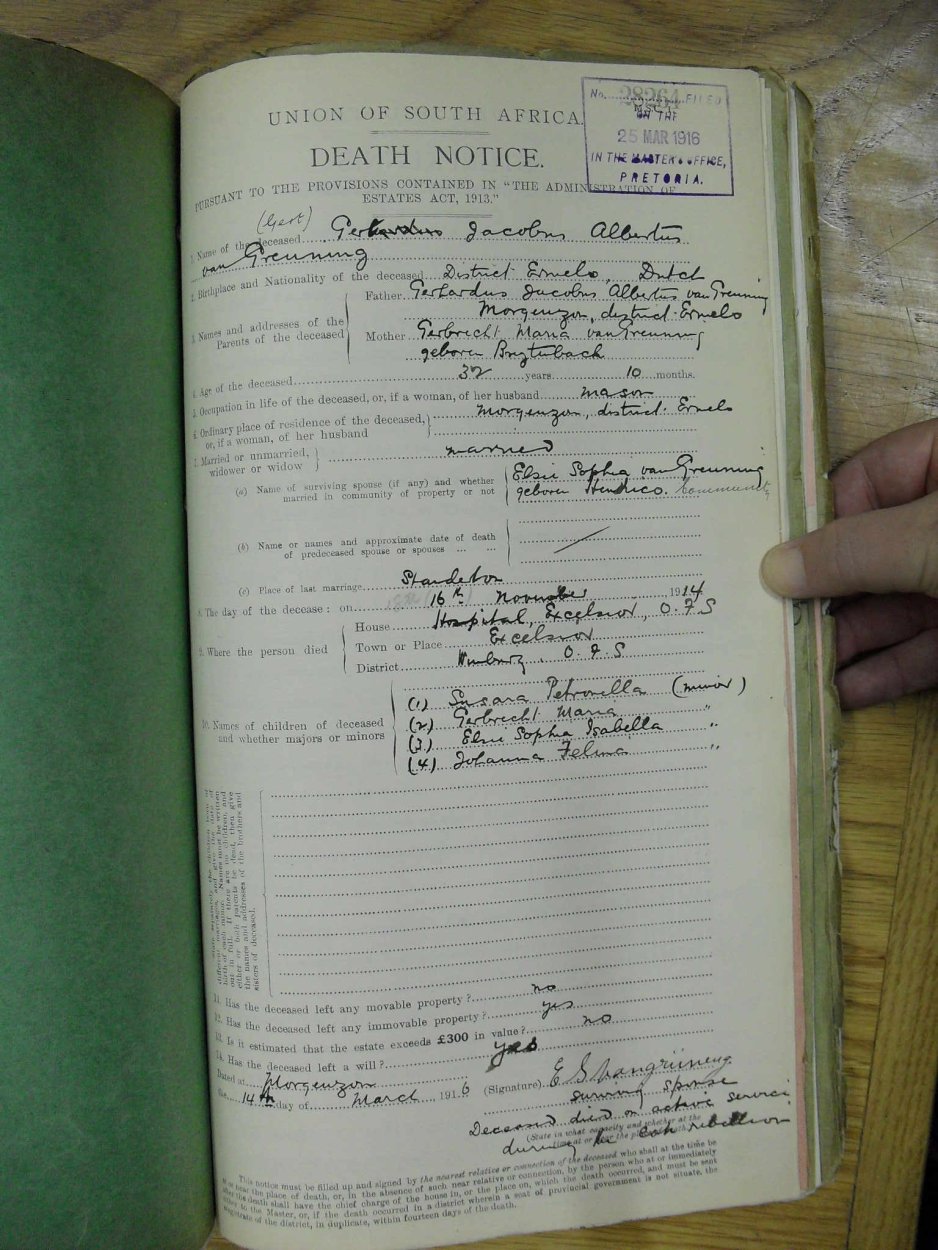 No. 28264 FILED
ON THE
25 MAR 1916
IN THE MASTER'S OFFICE,
PRETORIA.
UNION OF SOUTH AFRICA.
DEATH NOTICE.
PURSUANT TO THE PROVISIONS CONTAINED IN "THE ADMINISTRATION OF
ESTATES ACT, 1913."
(Gert)
1. Name of the deceased Gerhardus Jacobus Albertus
van Greuning
2. Birthplace and Nationality of the deceased District Ermelo, Dutch
3. Names and addresses of the Parents of the deceased
Father Gerhardus Jacobus Albertus van Greuning
Morgenzon, district Ermelo
Mother Gerbrecht Maria van Greuning
geboren
4. Age of the deceased 32 years 10 months.
5. Occupation in life of the deceased, or, if a woman, of her husband mason
6. Ordinary place of residence of the deceased, or, if a woman, of her husband
Morgenzon, district Ermelo
7. Married or unmarried, widower or widow
married
(a) Name of surviving spouse (if any) and whether married in community of property or not
Elsie Sophia van Greuning
geboren Community
(b) Name or names and approximate date of death of predeceased spouse or spouses ... ...
(c) Place of last marriage Standerton
8. The day of the decease: on 16th November 1914
9. Where the person died
House Hospital, Excelsior, O.F.S
Town or Place Excelsior
District Winburg, O.F.S
10. Names of children of deceased and whether majors or minors
(1) Susara Petronella (minor)
(2) Gerbrecht Maria "
(3) Elsie Sophia Isabella "
(4) Johanna "
different marriages, and give the date of
birth of each minor. Names must be written
out in full. If there are no children, and
either or both parents be dead, then give
the names and addresses of the brothers and
sisters of deceased.
11. Has the deceased left any movable property? no
12. Has the deceased left any immovable property? yes
13. Is it estimated that the estate exceeds £300 in value? no
14. Has the deceased left a will? yes
Dated at Morgenzon
the 14th day of March 1916
(Signature) E S van
surviving spouse
Deceased died on active service
(State in what capacity and whether at the
during rebellion
This notice must be filled up and signed by the nearest relative or connection of the deceased who shall at the time be
at or near the place of death, or, in the absence of such near relative or connection, by the person who at or immediately
after the death shall have the chief charge of the house in, or the place on, which the death occurred, and must be sent
either to the Master, or, if the death occurred in a district wherein a seat of provincial government is not situate, the
magistrate of the district, in duplicate, within fourteen days of the death.